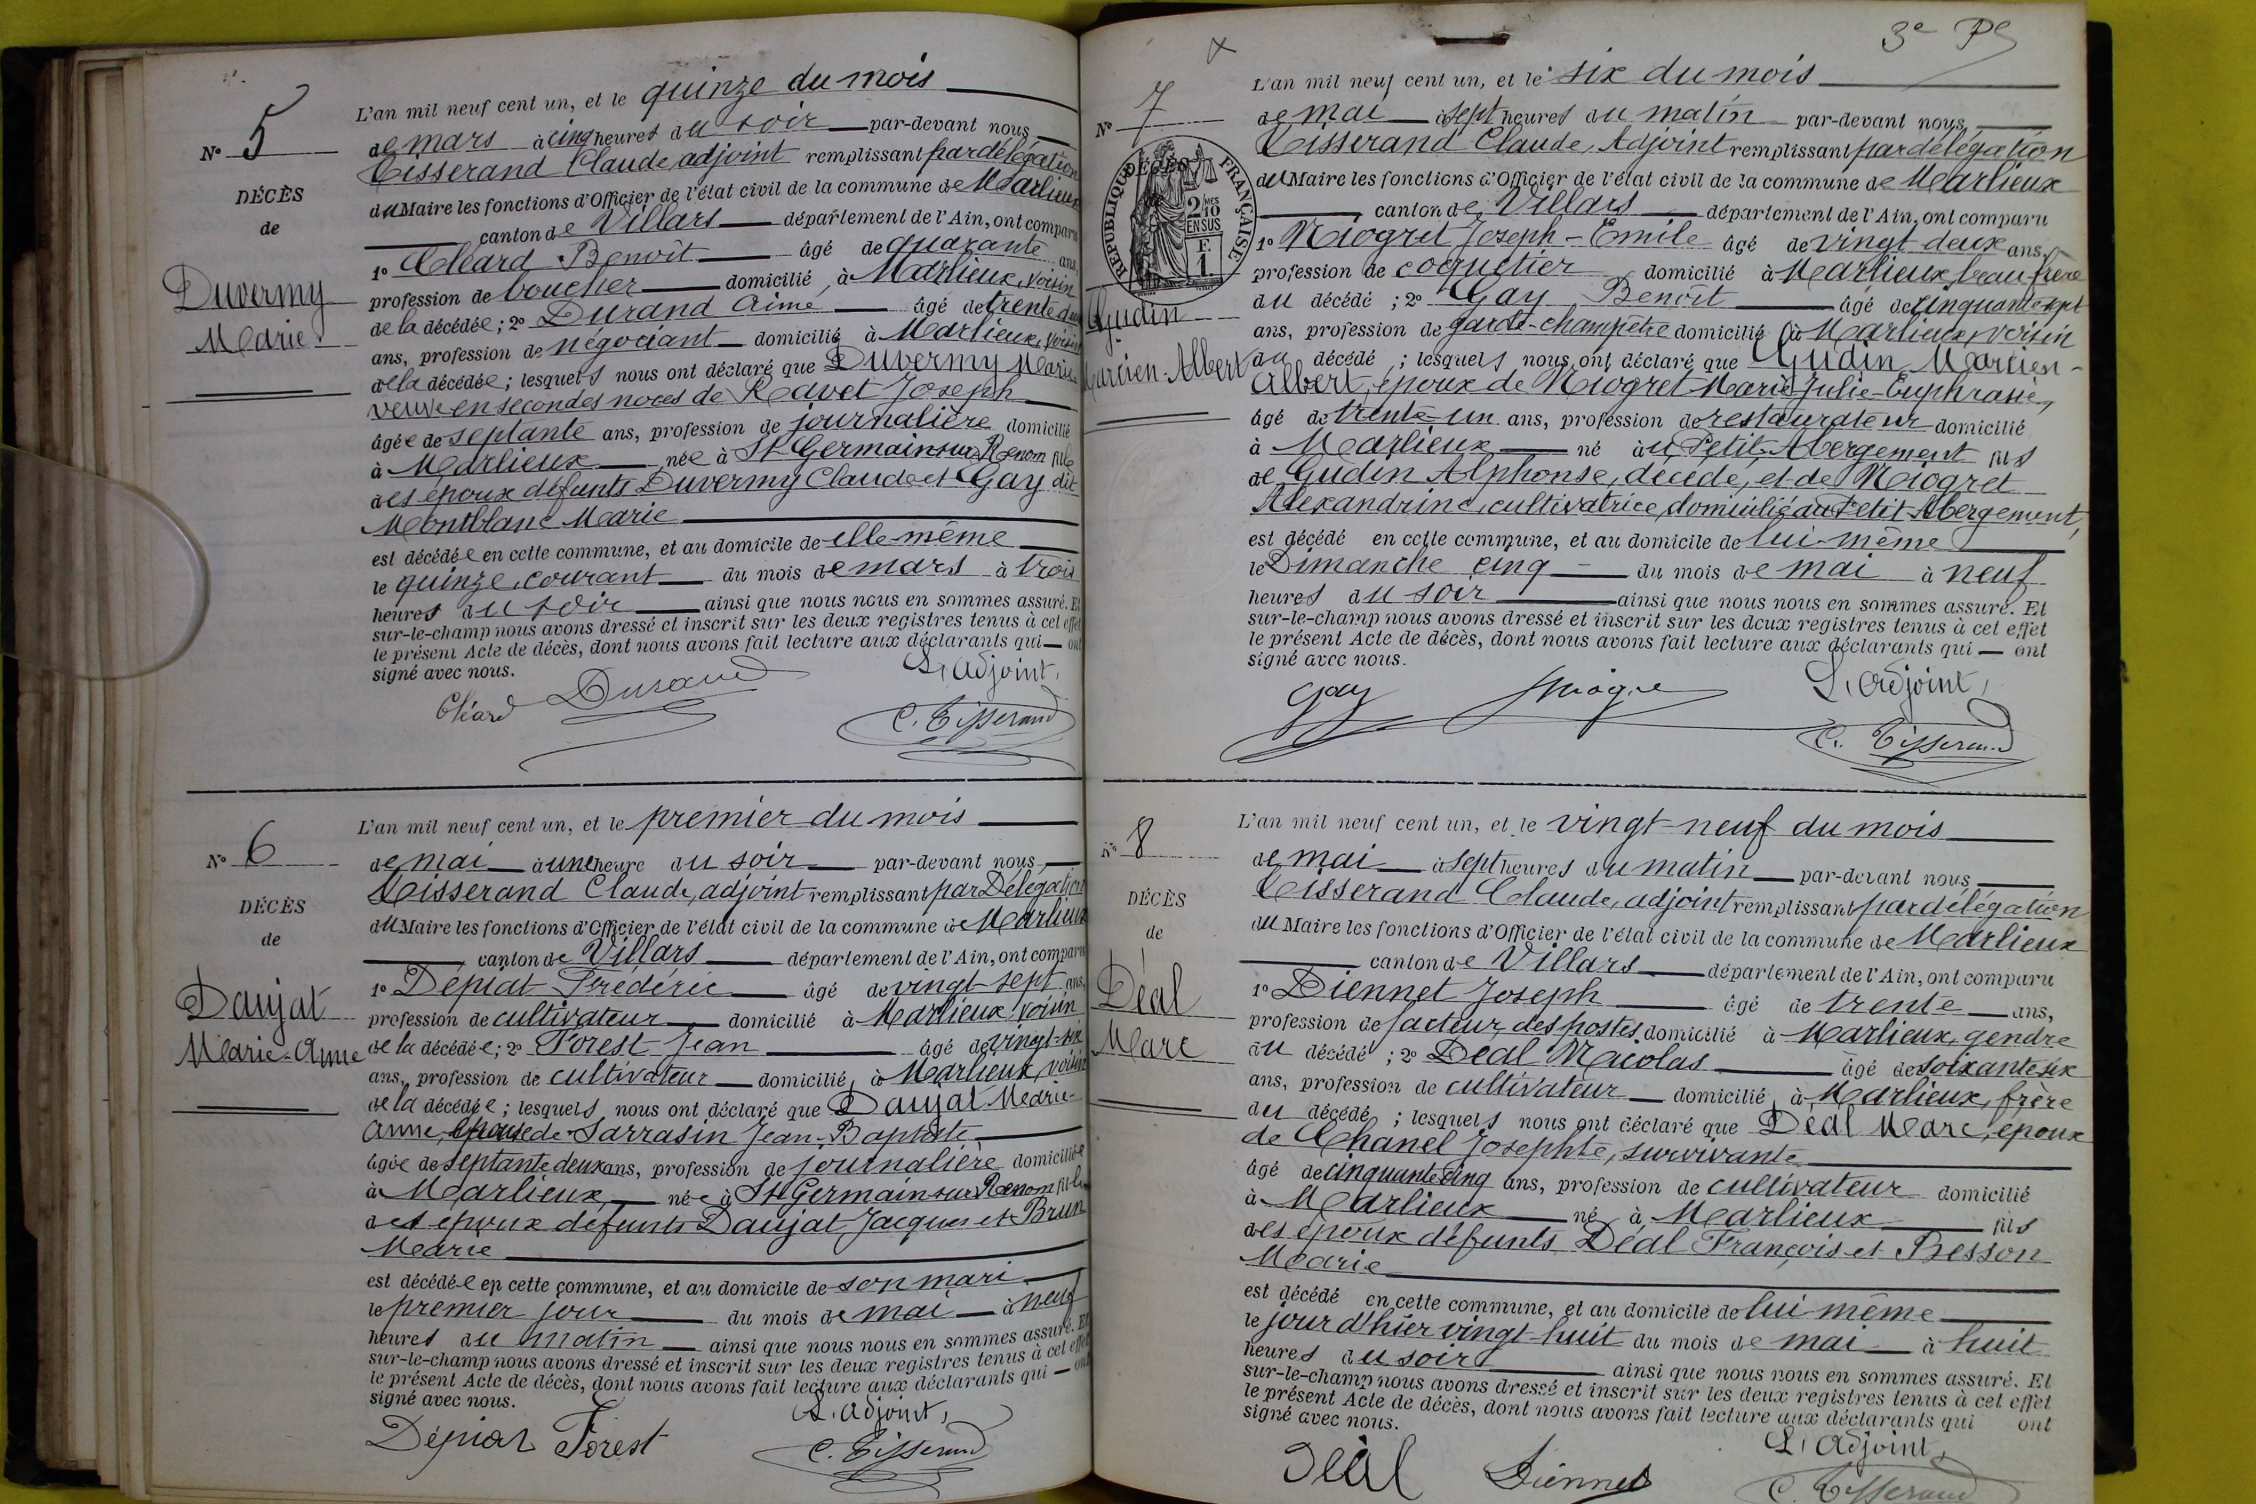 5
N°
DÉCÈS
de
Duvermy
Marie
L'an mil neuf cent un, et le quinze du mois
de mars à cinq heures du soir par-devant nous
Tisserand Claude, adjoint remplissant par délégation
du Maire les fonctions d'Officier de l'état civil de la commune de Marlieux
canton de Villars département de l'Ain, ont comparu
1° Cléard Benoît âgé de quarante ans,
profession de boucher domicilié à Marlieux, voisin
de la décédée ; 2° Durand Aimé âgé de trente deux
ans, profession de négociant domicilié à Marlieux, voisin
de la décédée ; lesquels nous ont déclaré que Duvermy Marie
veuve en secondes noces de Ravet Joseph
âgée de septante ans, profession de journalière domicilié
à Marlieux née à St Germain sur Renom fille
des époux défunts Duvermy Claude et Gay dit
Montblanc Marie
est décédée en cette commune, et au domicile de elle-même
le quinze, courant du mois de mars à trois
heures du soir ainsi que nous nous en sommes assuré. Et
sur-le-champ nous avons dressé et inscrit sur les deux registres tenus à cet effet
le présent Acte de décès, dont nous avons fait lecture aux déclarants qui ont
signé avec nous.
L'adjoint,
Cléard Durand
C. Tisserand
N° 6
DÉCÈS
de
Daujat
Marie-Anne
L'an mil neuf cent un, et le premier du mois
de mai à une heure du soir par-devant nous,
Tisserand Claude, adjoint remplissant par Délégation
du Maire les fonctions d'Officier de l'état civil de la commune de Marlieux
canton de Villars département de l'Ain, ont comparu
1° Dépiat Frédéric âgé de vingt-sept ans,
profession de cultivateur domicilié à Marlieux, voisin
de la décédée ; 2° Forest Jean âgé de vingt-six
ans, profession de cultivateur domicilié à Marlieux, voisin
de la décédée ; lesquels nous ont déclaré que Daujat Marie-
Anne, épouse de Sarrasin Jean-Baptiste,
âgée de septante deux ans, profession de journalière domiciliée
à Marlieux, née à St Germain sur Renom fille
des époux défunts Daujat Jacques et Brun
Marie
est décédée en cette commune, et au domicile de son mari
le premier jour du mois de mai à neuf
heures du matin ainsi que nous nous en sommes assuré. Et
sur-le-champ nous avons dressé et inscrit sur les deux registres tenus à cet effet
le présent Acte de décès, dont nous avons fait lecture aux déclarants qui ont
signé avec nous.
L'adjoint,
Dépiat Forest
C. Tisserand
3e
N° 7
RÉPUBLIQUE FRANÇAISE
DÉCÈS
2/10 MES
EN SUS
F.
1.
Gudin
Marcien-Albert
L'an mil neuf cent un, et le six du mois
de mai à sept heures du matin par-devant nous,
Tisserand Claude, Adjoint remplissant par délégation
du Maire les fonctions d'Officier de l'état civil de la commune de Marlieux
canton de Villars département de l'Ain, ont comparu
1° Niogret Joseph-Emile âgé de vingt deux ans,
profession de coquetier domicilié à Marlieux, beau frère
du décédé ; 2° Gay Benoît âgé de cinquante sept
ans, profession de garde-champêtre domicilié à Marlieux, voisin
du décédé ; lesquels nous ont déclaré que Gudin Marcien-
Albert, époux de Niogret Marie-Julie-Euphrasie,
âgé de trente-un ans, profession de restaurateur domicilié
à Marlieux né au Petit-Abergement fils
de Gudin Alphonse, décédé, et de Niogret
Alexandrine, cultivatrice, domiciliée au Petit-Abergement,
est décédé en cette commune, et au domicile de lui même
le Dimanche cinq du mois de mai à neuf
heures du soir ainsi que nous nous en sommes assuré. Et
sur-le-champ nous avons dressé et inscrit sur les deux registres tenus à cet effet
le présent Acte de décès, dont nous avons fait lecture aux déclarants qui ont
signé avec nous.
L'adjoint,
Gay
C. Tisserand
N° 8
DÉCÈS
de
Déal
Marc
L'an mil neuf cent un, et le vingt-neuf du mois
de mai à sept heures du matin par-devant nous
Tisserand Claude, adjoint remplissant par délégation
du Maire les fonctions d'Officier de l'état civil de la commune de Marlieux
canton de Villars département de l'Ain, ont comparu
1° Diennet Joseph âgé de trente ans,
profession de facteur des postes domicilié à Marlieux, gendre
du décédé ; 2° Déal Nicolas âgé de soixante six
ans, profession de cultivateur domicilié à Marlieux, frère
du décédé ; lesquels nous ont déclaré que Déal Marc, époux
de Chanel Josephte, survivante
âgé de cinquante cinq ans, profession de cultivateur domicilié
à Marlieux né à Marlieux fils
des époux défunts Déal François et Besson
Marie
est décédé en cette commune, et au domicile de lui même
le jour d'hier vingt-huit du mois de mai à huit
heures du soir ainsi que nous nous en sommes assuré. Et
sur-le-champ nous avons dressé et inscrit sur les deux registres tenus à cet effet
le présent Acte de décès, dont nous avons fait lecture aux déclarants qui ont
signé avec nous.
L'Adjoint,
Déal Diennet
C. Tisserand